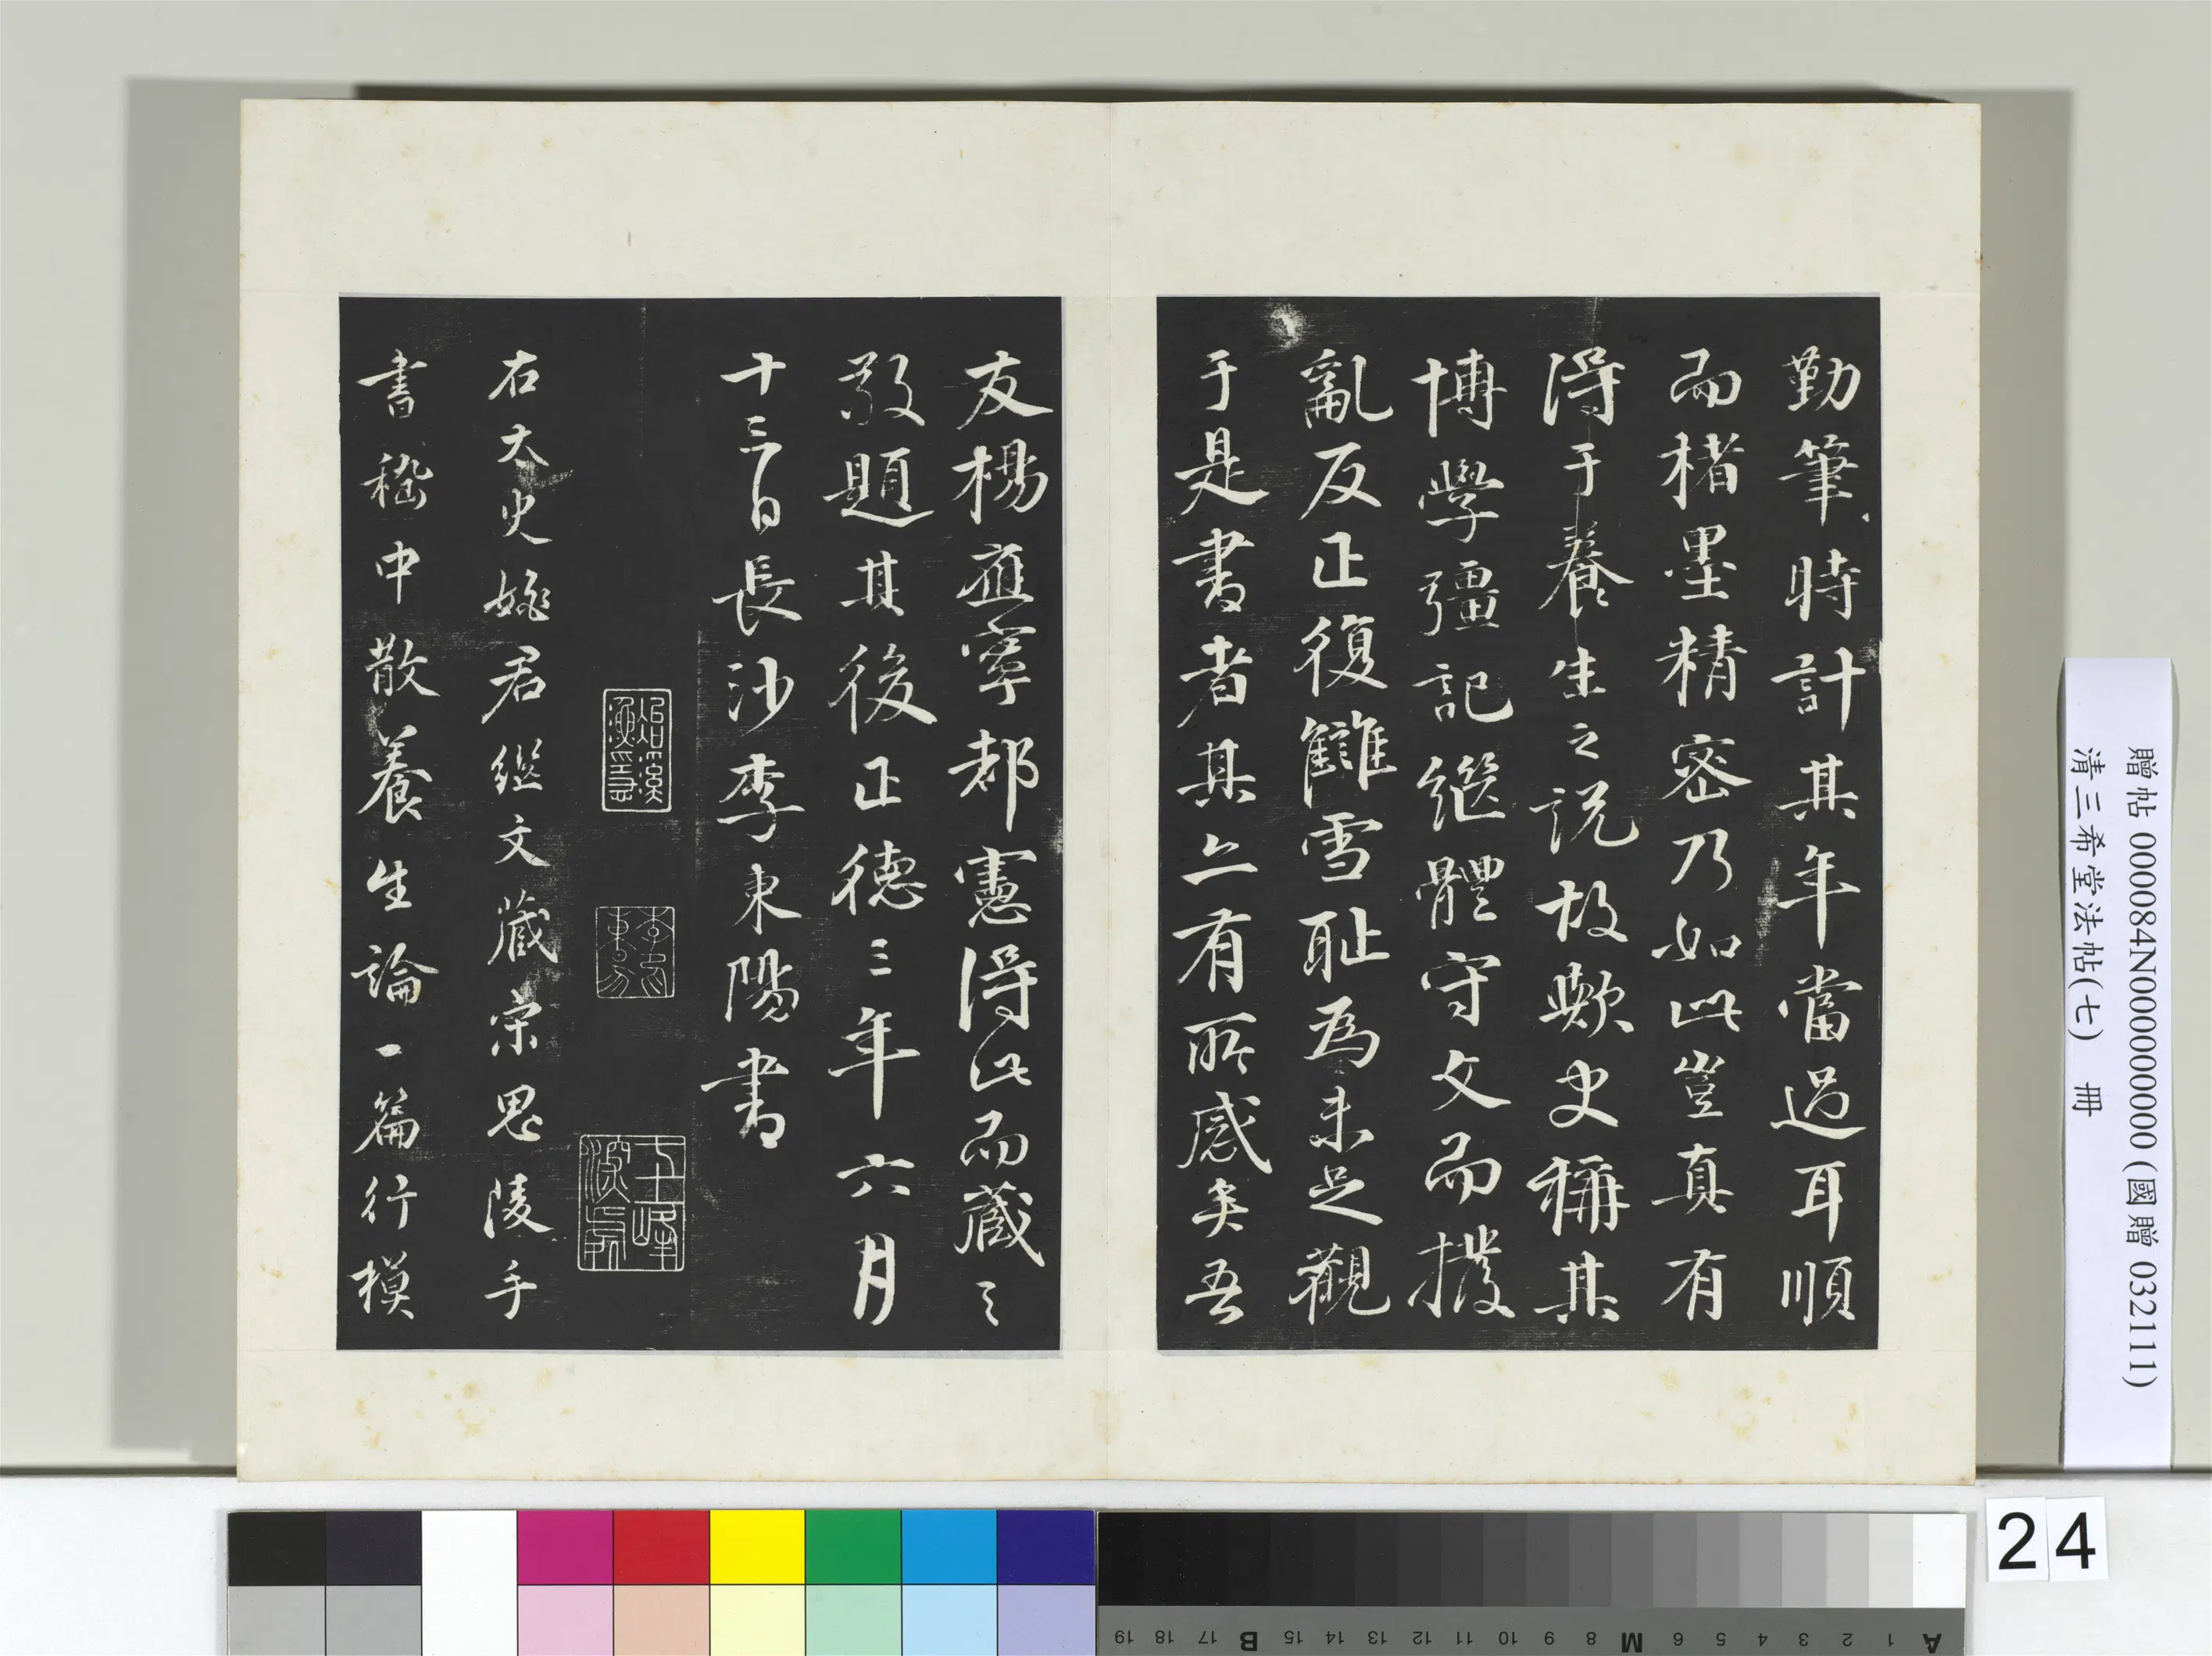 勤筆時計其年當過耳順
而楮墨精密乃如此豈真有
得于養生之說故歟史稱其
博學彊記繼體守文而撥
亂反正復讎雪恥為未足觀
于是書者其亦有所感矣吾
友楊應寧都憲得此而藏之
敬題其後正德三年六月
十三日長沙李東陽書
李東陽
右太史姚君繼文藏宋思陵手
書嵇中散養生論一篇行模
贈帖 000084N000000000 (國贈 032111)
清三希堂法帖(七) 冊
24
A 1 2 3 4 5 6 M 8 9 10 11 12 13 14 15 B 17 18 19